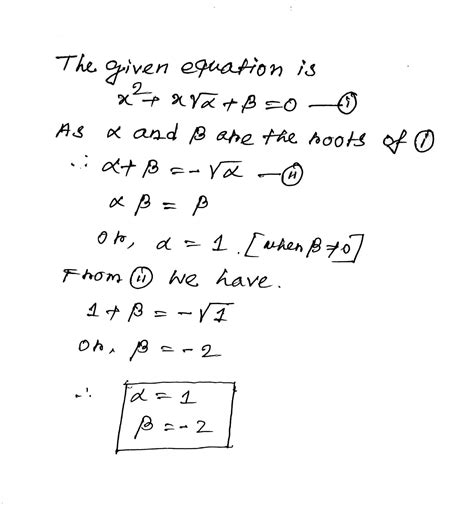 The given equation is
x² + x√α + β = 0 —(i)
As α and β are the roots of (i)
∴ α + β = - √α —(ii)
α β = β
or, α = 1. [when β ≠ 0]
From (ii) we have.
1 + β = - √1
or, β = - 2
∴ α = 1
β = - 2